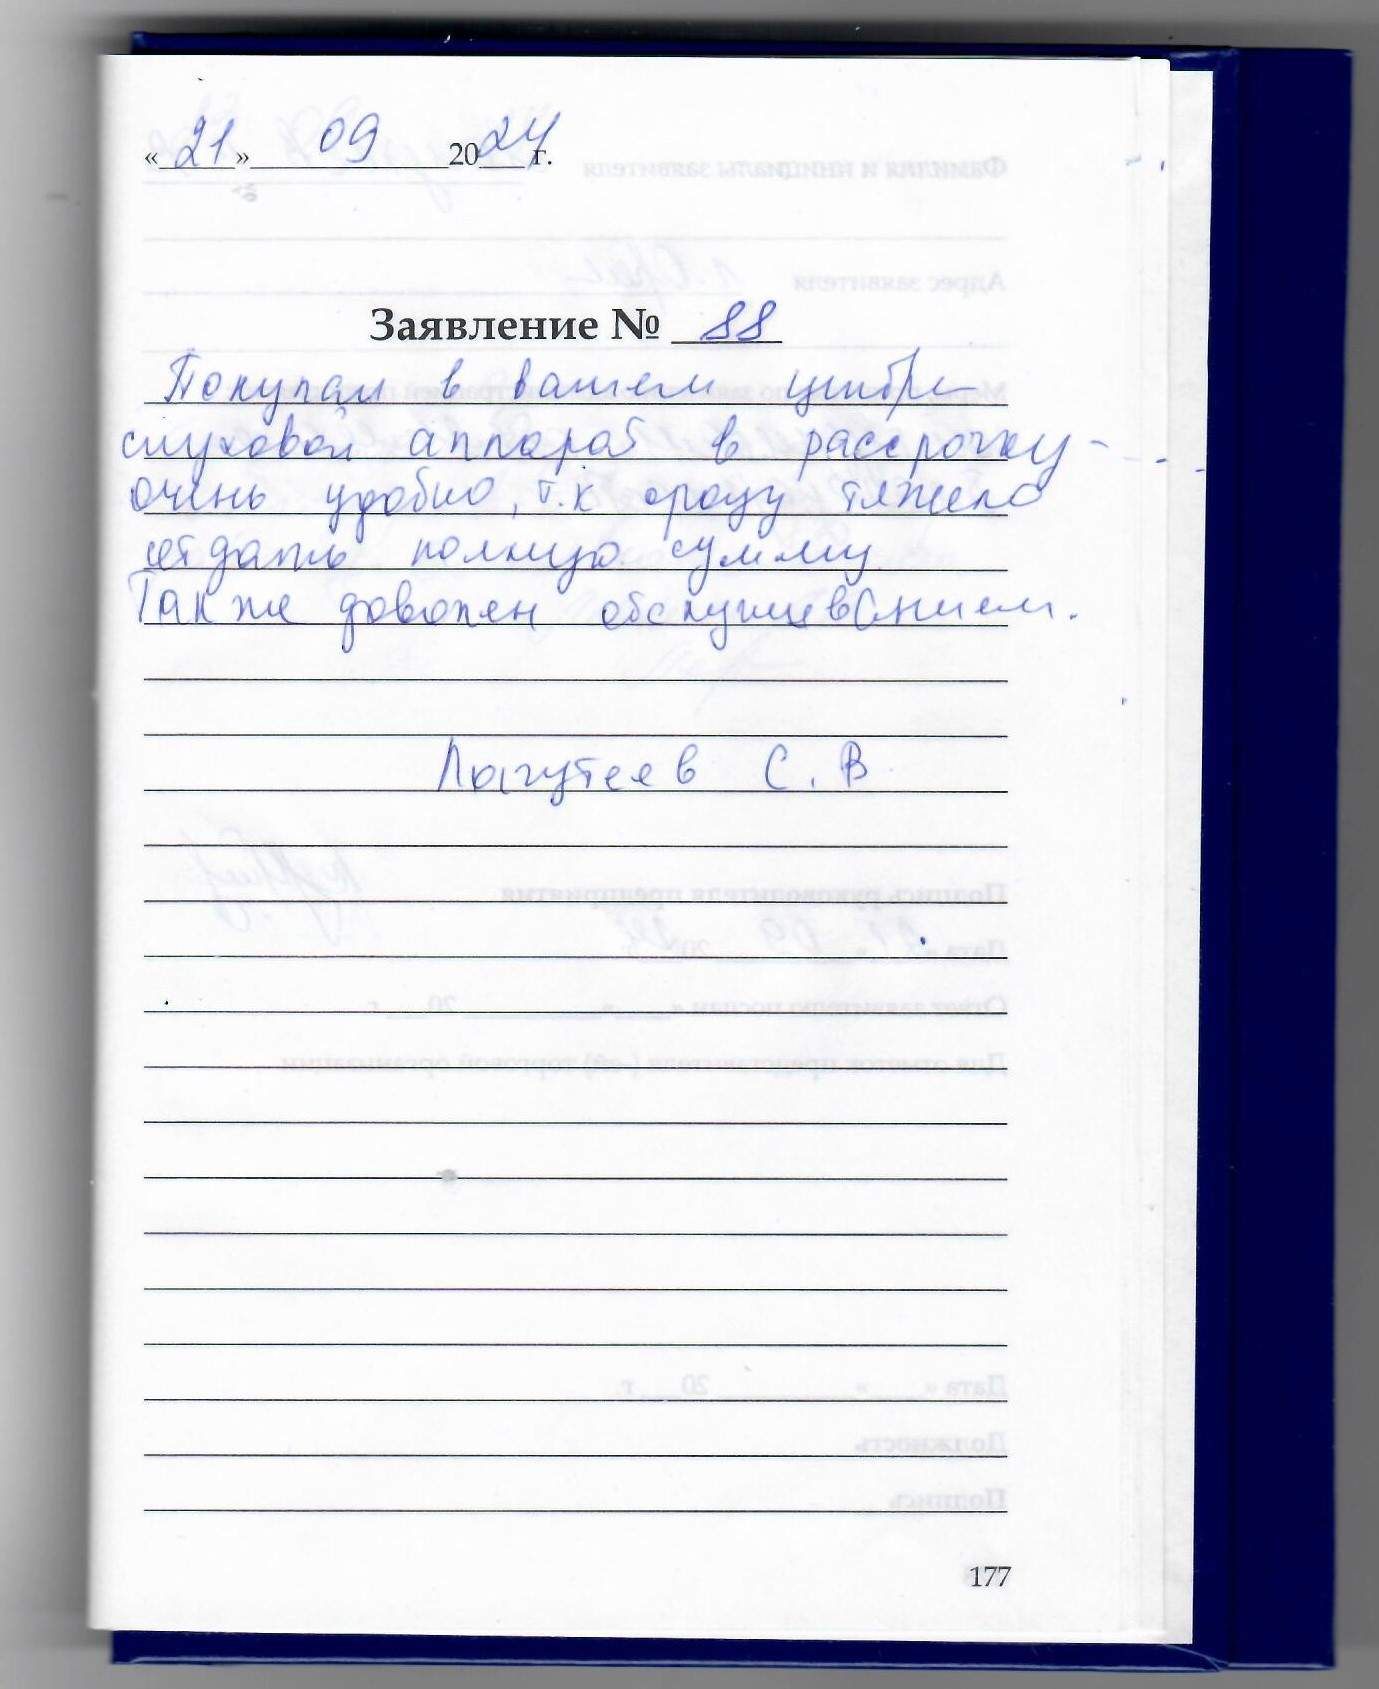 «21» 09 2024 г.
Заявление № 88
Покупал в вашем центре
слуховой аппарат в рассрочку -
очень удобно, т.к сразу тяжело
отдать полную сумму
Также доволен обслуживанием.
С. В
177